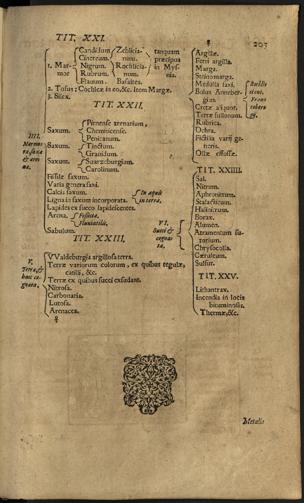 207
TIT. XXI.
1. Marmor
Candidum
Cinereum.
Nigrum.
Rubrum.
Flauum.
Zeblicianum.
Rochlicianum.
Basaltes.
tanquam
præcipua
in Mysnia.
2. Tofus: Cochleæ in eo, &c. Item Margæ.
3. Silex.
TIT. XXII.
IIII.
Marmora, saxa
Saxum.
Pirnense arenarium,
Chemnicense.
Penicanum.
Saxum.
Tinctum.
Grandium.
Saxum
Suartzeburgium.
Carolinum.
Fissile saxum.
Varia genera saxi.
Calcis saxum.
Lignea in saxum incorporata.
In aquis
in terra.
Lapides ex succo lapidescentes.
Arena.
Fossicia.
Fluuiatilis.
Sabulum.
TIT. XXIII.
V.
Terræ, &
huic cognata.
VValdeburgia argillosa terra.
Terræ variorum colorum, ex quibus tegulæ,
catini, &c.
Terræ ex quibus succi exsudant.
Nitrosa.
Carbonaria.
Lutosa.
Arenacea.
Argillæ.
Ferri argilla.
Marga.
Stenomarga.
Medulla saxi.
Bolus Annebergius.
Cretæ aliquot.
Terræ fullonum.
Rubrica.
Ochra.
Fictilia varij generis.
Ollæ effossæ.
TIT. XXIIII.
VI.
Succi &
cognata.
Sal.
Nitrum.
Aphronitrum.
Halinitrum.
Borax.
Alumen.
Atramentum sutorium.
Chrysocolla.
Cæruleum.
Sulfur.
TIT. XXV.
Lithantrax.
Incendia in locis
bituminosis.
Thermæ, &c.
Metalla